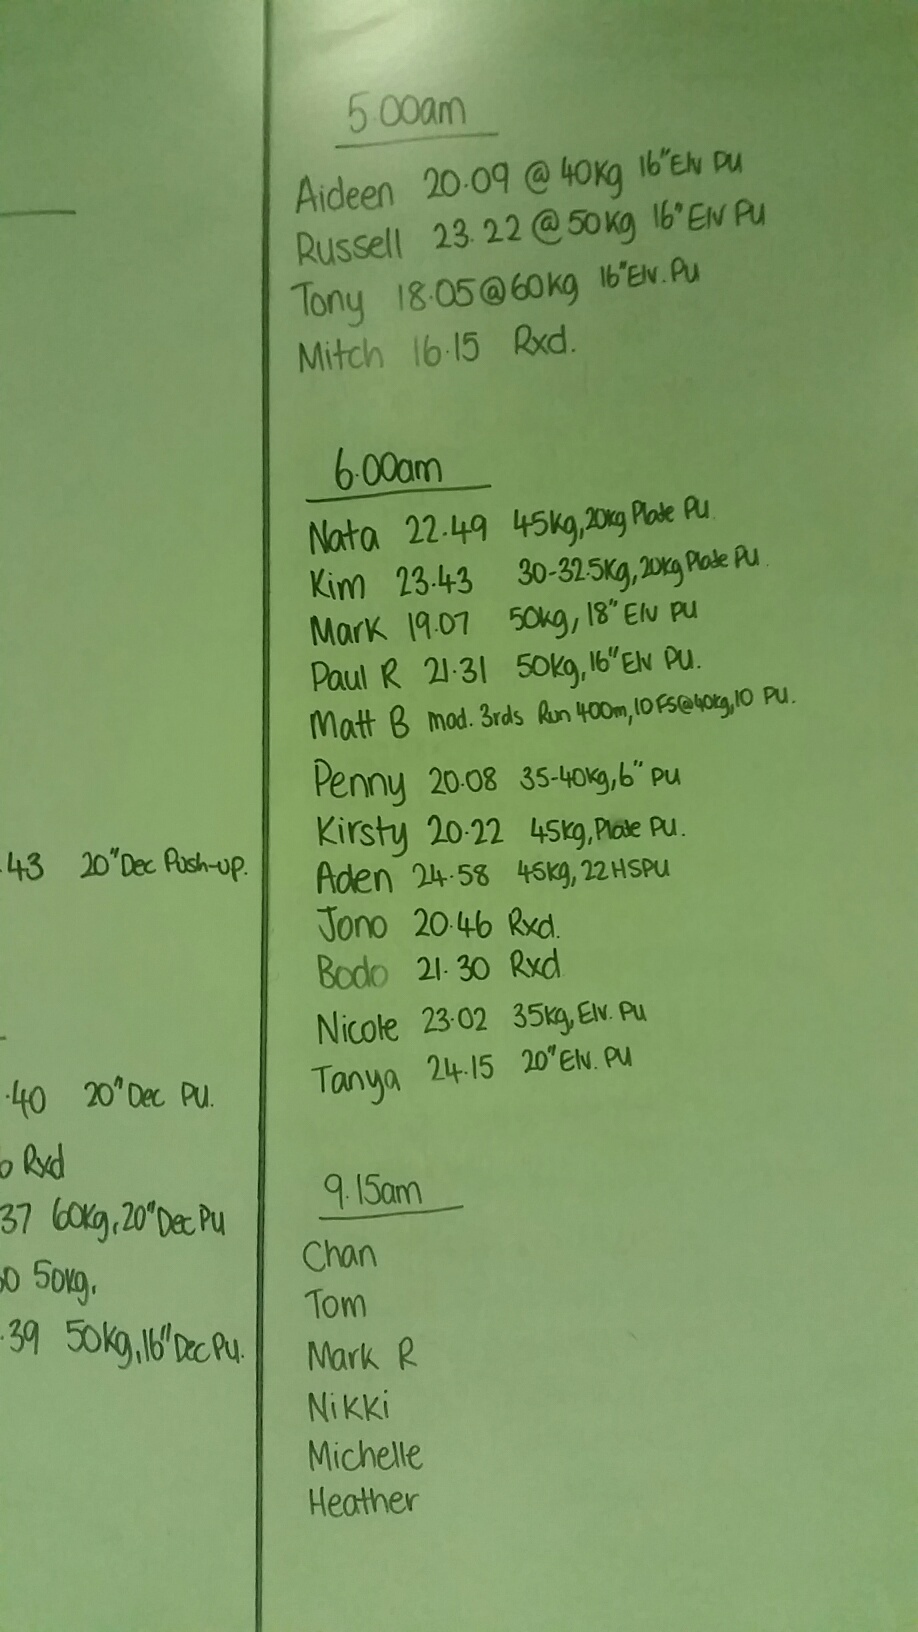 .43 20"Dec Push-up.
.40 20"Dec PU.
Rxd
37 60kg, 20"Dec PU
0 50kg,
.39 50kg, 16"Dec PU.
5.00am
Aideen 20.09 @ 40kg 16"Elv PU
Russell 23.22 @ 50kg 16"Elv PU
Tony 18.05 @ 60kg 16"Elv. PU
Mitch 16.15 Rxd.
6.00am
Nata 22.49 45kg, 20kg Plate PU
Kim 23.43 30-32.5kg, 20kg Plate PU.
Mark 19.07 50kg, 18" Elv PU
Paul R 21.31 50kg, 16" Elv PU.
Matt B mod. 3rds Run 400m, 10 FS@40kg, 10 PU.
Penny 20.08 35-40kg, 6" PU
Kirsty 20.22 45kg, Plate PU.
Aden 24.58 45kg, 22 HSPU
Jono 20.46 Rxd.
Bodo 21.30 Rxd
Nicole 23.02 35kg, Elv. PU
Tanya 24.15 20"Elv. PU
9.15am
Chan
Tom
Mark R
Nikki
Michelle
Heather